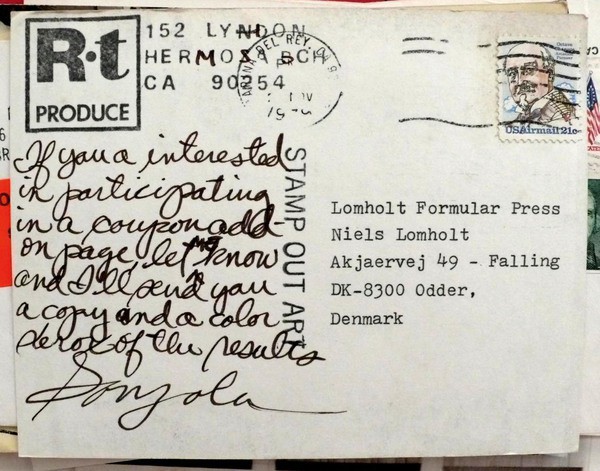 R.t
PRODUCE
152 LYNDON
HERMOSA BCH
CA 90254
MARINA DEL REY, CA
USAirmail 21c
If you a interested
in participating
in a coupon add
on page, let me know
and I'll send you
a copy and a color
xerox of the results
STAMP OUT ART
Lomholt Formular Press
Niels Lomholt
Akjaervej 49 - Falling
DK-8300 Odder,
Denmark